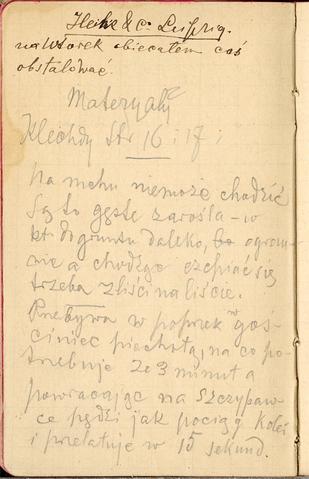 & Co Leipzig.
na Wtorek obiecałem coś
obstalować.
Materyały
Klechdy Str 16 i 17 i
na mchu niemoże chodzić
Są to gęste zarośla – w
kt. do gruntu daleko, bo ogrom-
nie a chodząc czepiać się
trzeba z liści na liście.
Przebywa w poprzek goś-
ciniec piechotą, na co po-
trzebuje ze 3 minut a
powracając na szczypaw-
ce pędzi jak pociąg kolei
i przelatuje w 15 sekund.